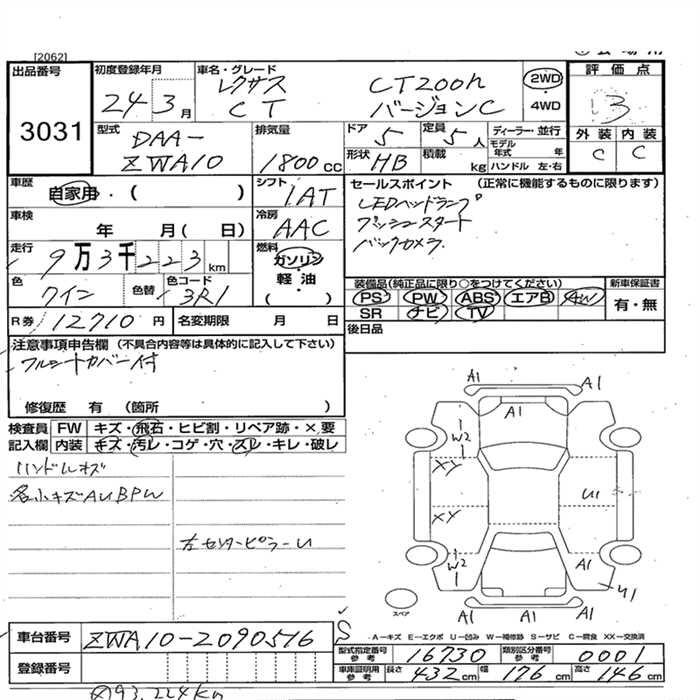 [2062]
出品番号
3031
初度登録年月
24 3月
車名・グレード
レクサス CT200h
CT バージョンC
2WD
4WD
評価点
3
外装 内装
C C
型式
DAA-
ZWA10
排気量
1800cc
ドア 5
定員 5人
形状 HB
積載 kg
ディーラー・並行
モデル年式 年
ハンドル 左・右
車歴
自家用・( )
シフト
IAT
セールスポイント (正常に機能するものに限ります)
LEDヘッドランプ
プッシュスタート
バックカメラ
車検
年 月( 日)
冷房
AAC
走行
9万3千223km
燃料
ガソリン
軽油
( )
色
ワイン
色替
色コード
3R1
装備品(純正品に限り○をつけてください)
PS PW ABS エアB AW
SR ナビ TV
新車保証書
有・無
R券 12710円
名変期限 月 日
後日品
注意事項申告欄 (不具合内容等は具体的に記入して下さい)
フルシートカバー付
修復歴 有 (箇所 )
検査員 FW キズ・飛石・ヒビ割・リペア跡・×要
記入欄 内装 キズ・汚レ・コゲ・穴・スレ・キレ・破レ
ハンドルキズ
各小キズAUBPW
左センターピラーU
A1 A1
A1
W2
XY
U1
XY
W2
A1
U1
A1 A1 A1
スペア
A-キズ E-エクボ U-凹み W-補修跡 S-サビ C-腐食 XX-交換済
車台番号 ZWA10-2090516
登録番号
型式指定番号 参考 16730
類別区分番号 参考 0001
車庫証明用 参考 長さ 432cm 幅 176cm 高さ 146cm